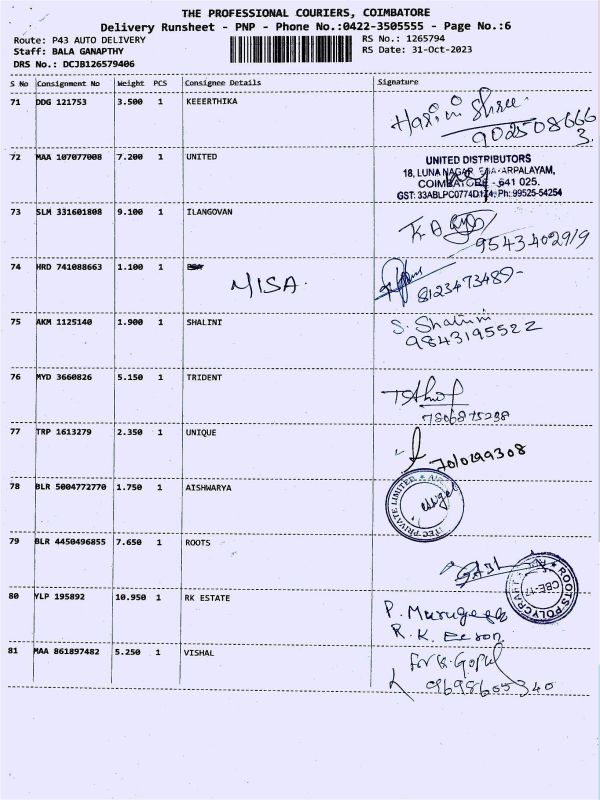 THE PROFESSIONAL COURIERS, COIMBATORE
Delivery Runsheet - PNP - Phone No.:0422-3505555 - Page No.:6
Route: P43 AUTO DELIVERY RS No.: 1265794
Staff: BALA GANAPTHY RS Date: 31-Oct-2023
DRS No.: DCJB126579406
S No Consignment No Weight PCS Consignee Details Signature
71 DDG 121753 3.500 1 KEEERTHIKA
Harini Shree
902508666
3.
72 MAA 107077008 7.200 1 UNITED
UNITED DISTRIBUTORS
18, LUNA NAGAR
COIMBATORE - 641 025.
GST: 33ABLPC0774D1Z4, Ph: 99525-54254
73 SLM 331601808 9.100 1 ILANGOVAN
9543402919
74 HRD 741088663 1.100 1
MISA.
8123473489-
75 AKM 1125140 1.900 1 SHALINI
S. Shalini
9843195522
76 MYD 3660826 5.150 1 TRIDENT
77 TRP 1613279 2.350 1 UNIQUE
78 BLR 5004772770 1.750 1 AISHWARYA
TEC PRIVATE LIMITED
79 BLR 4450496855 7.650 1 ROOTS
ROOTS POLYCRAFT
CBE-17
80 YLP 195892 10.950 1 RK ESTATE
P.
R. K.
81 MAA 861897482 5.250 1 VISHAL
Gopal
9698605340